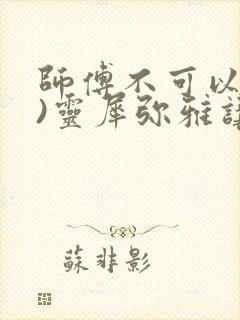 師傅不可以
)靈犀弥雅
蘇非影